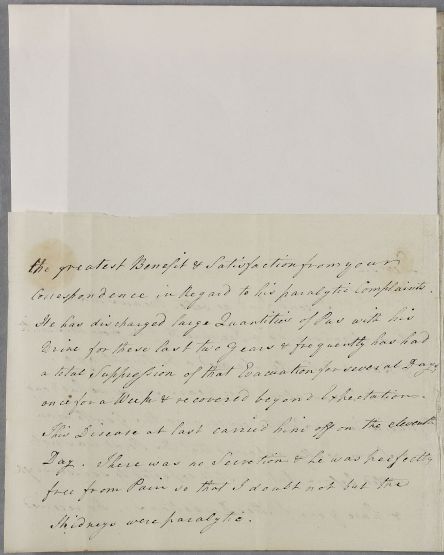 the greatest Benefit & Satisfaction from your
Correspondence in Regard to his paralytic Complaints.
He has discharged large Quantities of Pus with his
Urine for these last two Years & frequently has had
a total Suppression of that Evacuation for several Days
once for a Week & recovered beyond Expectation.
This Disease at last carried him off on the eleventh
Day. There was no Secretion & he was perfectly
free from Pain so that I doubt not but the
Kidneys were paralytic.